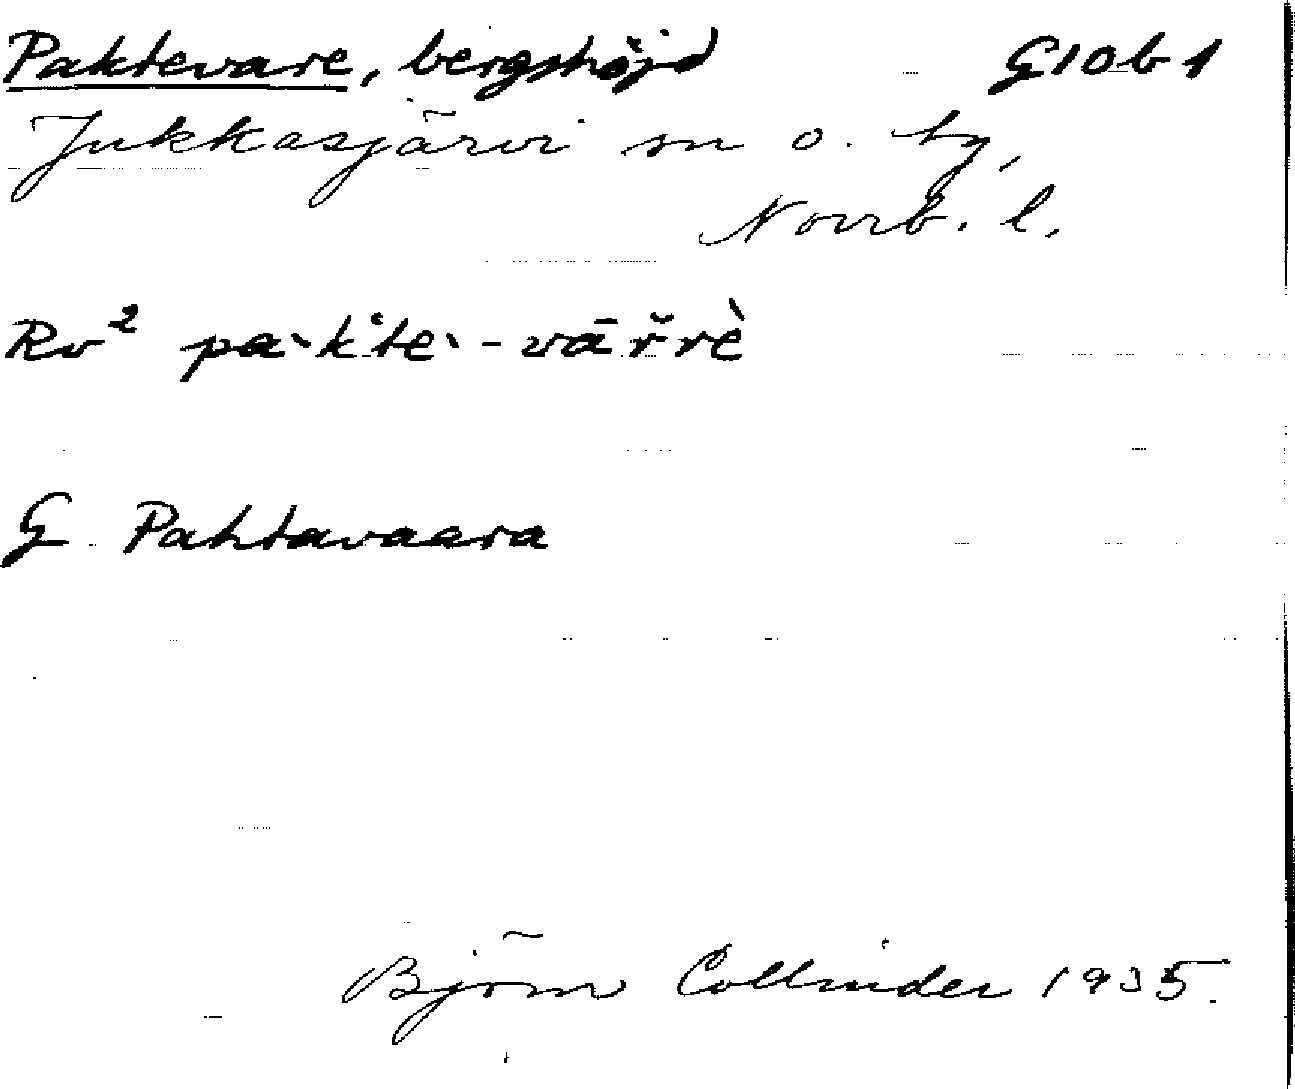 Paktevare, bergshöjd G10b1
Jukkasjärvi sn o. by,
Norrb. l.
Rv² pa`k͑te`-vār̆rè
G Pahtavaara
Björn Collinder 1935.